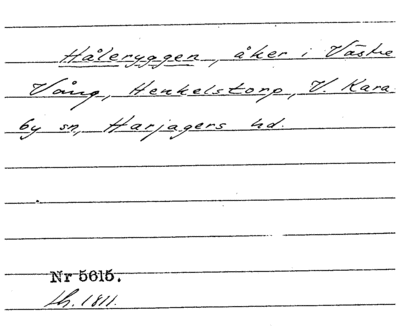 Håleryggen, åker i Västra
Vång, Henkelstorp, V. Kara-
by sn, Harjagers hd.
Nr 5615.
th. 1811.